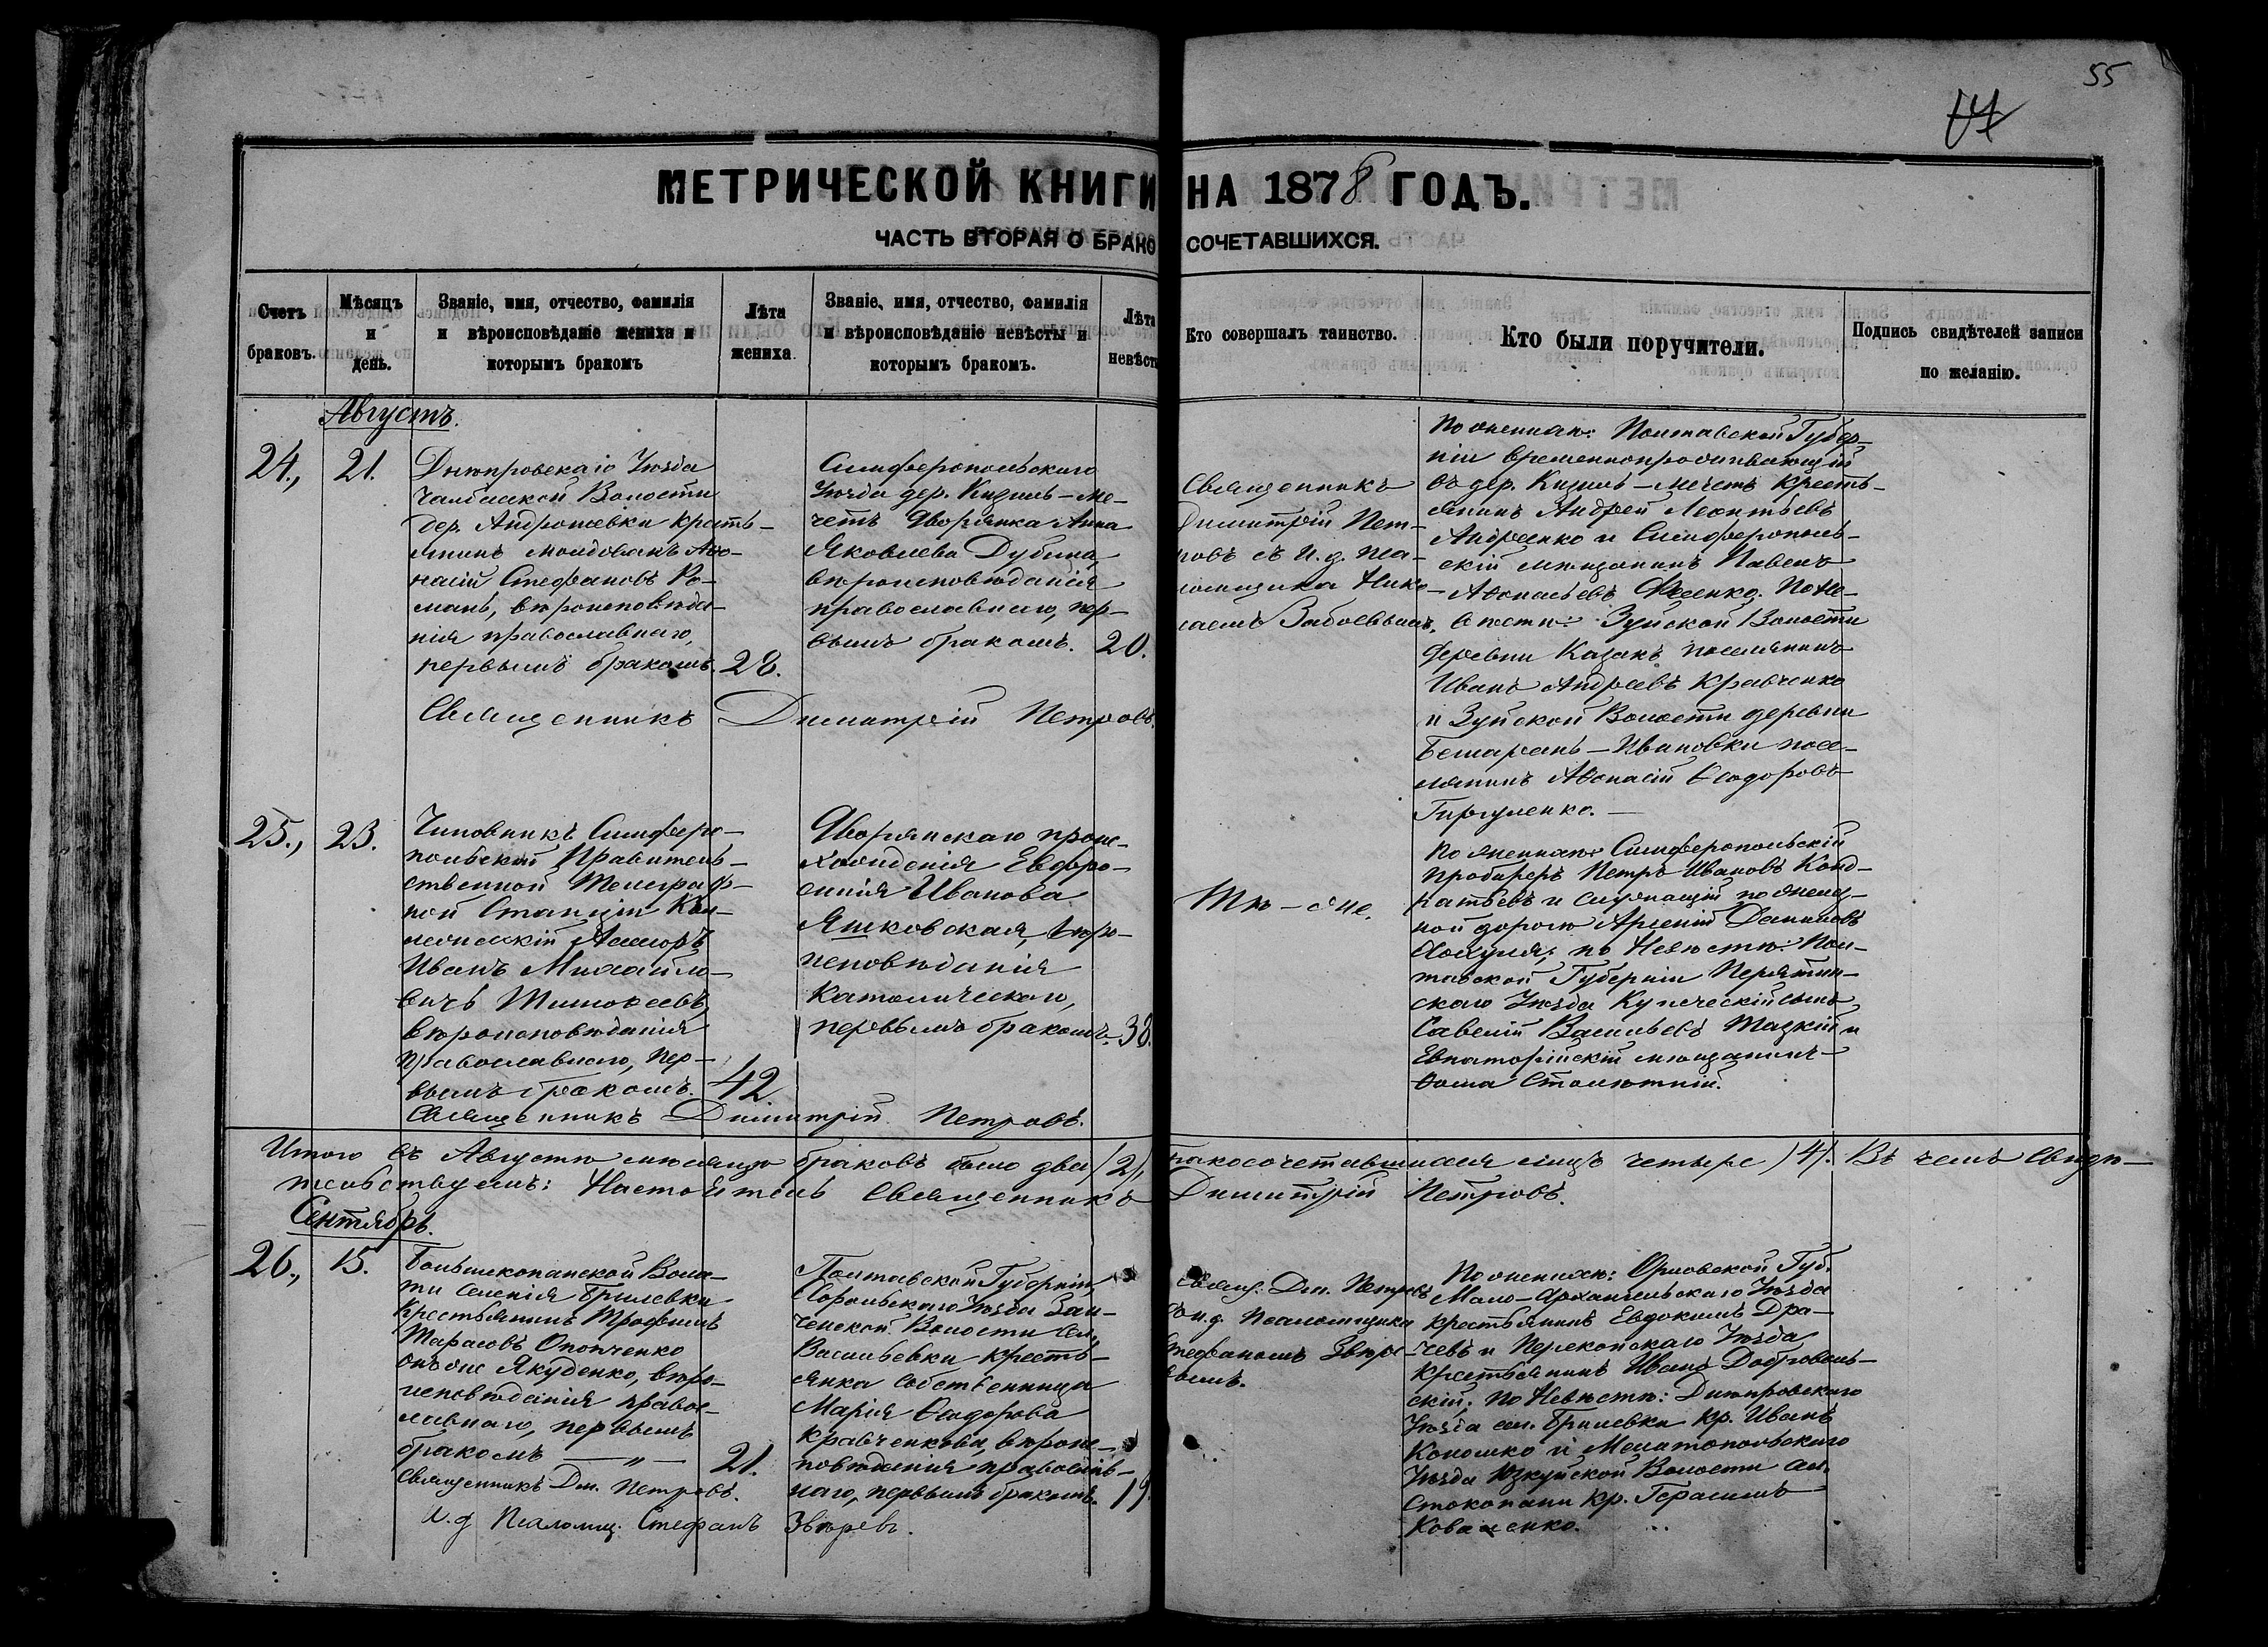 55
МЕТРИЧЕСКОЙ КНИГИ НА 1878 ГОДЪ.
ЧАСТЬ ВТОРАЯ О БРАКОСОЧЕТАВШИХСЯ.
Счетъ браковъ.
Мѣсяцъ и день.
Званіе, имя, отчество, фамилія и вѣроисповѣданіе жениха и которымъ бракомъ
Лѣта жениха.
Званіе, имя, отчество, фамилія и вѣроисповѣданіе невѣсты и которымъ бракомъ.
Лѣта невѣсты
Кто совершалъ таинство.
Кто были поручители.
Подпись свидѣтелей записи по желанію.
Августъ.
24., 21.
Днѣпровскаго Уѣзда
Чалбаской Волости
дер. Андрошевки кресть-
янинъ молдованъ Аѳо-
насій Стефановъ Ро-
манъ, вѣроисповѣда-
нія православнаго,
первымъ бракомъ 28.
Симферопольскаго
Уѣзда дер. Кизиль-ме-
четь Дворянка Анна
Яковлева Дубина,
вѣроисповѣданія
православнаго, пер-
вымъ бракомъ. 20.
Священникъ
Димитрій Пет-
ровъ съ и. д. пса-
ломщика Нико-
лаемъ
По женихѣ: Полтавской Губер-
ніи временнопроживающій
въ дер. Кизиль-мечеть кресть-
янинъ Андрей Леонтьевъ
Андреенко и Симферополь-
скій мѣщанинъ Павелъ
Аѳонасьевъ Фесенко. По Не-
вѣстѣ: Зуйской Волости
деревни Казакъ поселянинъ
Иванъ Андреевъ Кравченко
и Зуйской Волости деревни
Бешарань-Ивановки посе-
лянинъ Аѳонасій Ѳеодоровъ
Священникъ Димитрій Петровъ.
25., 23.
Чиновникъ Симферо-
польской Правитель-
ственной Телеграф-
ной Станціи Кол-
лежскій Ассесоръ
Иванъ Михайло-
вичъ Тимоѳеевъ,
вѣроисповѣданія
Православнаго, пер-
вымъ бракомъ. 42
Дворянскаго проис-
хожденія Евфро-
синія Иванова
Яшковская, вѣро-
исповѣданія
Католическаго,
первымъ бракомъ. 38.
Тѣ-же.
По женихѣ: Симферопольскій
пробиреръ Петръ Ивановъ Конд-
ратьевъ и служащій по желѣз-
ной дорогѣ Арсеній Даниловъ
по Невѣстѣ: Пол-
тавской Губерніи Пирятин-
скаго Уѣзда Купеческій сынъ
Савелій Васильевъ Тацкій и
Евпаторійскій мѣщанинъ
Ѳома Столѣтній.
Священникъ Димитрій Петровъ.
Итого въ Августѣ мѣсяцѣ браковъ было два (2), бракосочетавшихся лицъ четыре (4). Въ чемъ свидѣ-
тельствуемъ: Настоятель Священникъ Димитрій Петровъ.
Сентябрь.
26., 15.
Большекопанской Воло-
ти селенія Брилевки
Крестьянинъ Трофимъ
Тарасовъ Опопченко
онъ же Якуденко, вѣро-
исповѣданія правос-
лавнаго, первымъ
бракомъ — „ — 21.
Полтавской Губерніи,
Хорольскаго Уѣзда
Волости сел.
Васильевки кресть-
янка собственница
Марія Ѳеодорова
Кравченкова, вѣроис-
повѣданія православ-
наго, первымъ бракомъ. 19.
Свящ. Дим. Петровъ
съ и. д. Псаломщика
Стефаномъ Звѣре-
вымъ.
По женихѣ: Орловской Губ.
Мало-Архангельскаго Уѣзда
крестьянинъ Евдокимъ Дра-
чевъ и Перекопскаго Уѣзда
крестьянинъ Иванъ Доброволь-
скій; по Невѣстѣ: Днѣпровскаго
Уѣзда сел. Брилевки кр. Иванъ
Коломко и Мелитопольскаго
Уѣзда Юзкуйской Волости сел.
Стокопани кр. Герасимъ
Коваленко.
Священникъ Дим. Петровъ.
И. д Псаломщ. Стефанъ Звѣревъ.